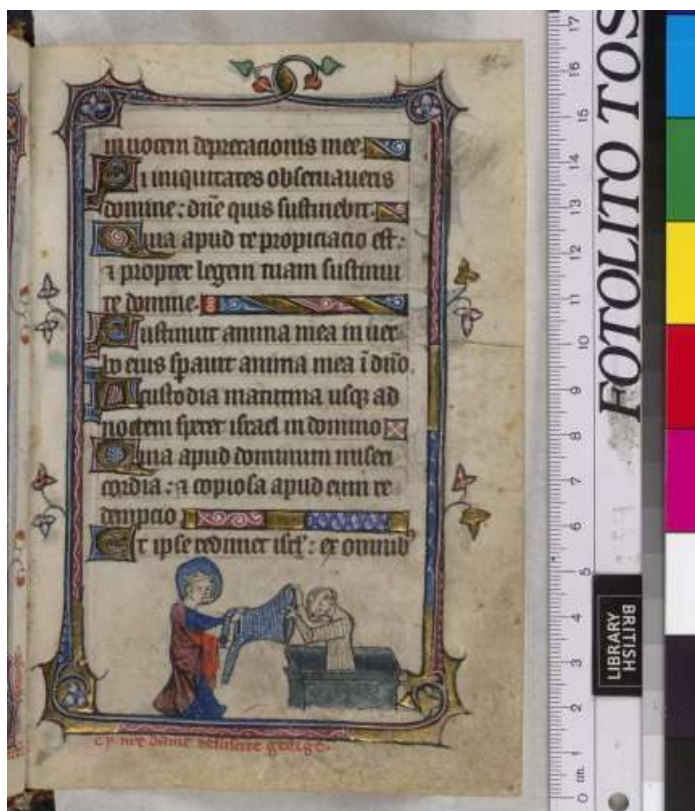 in uocem deprecacionis mee.
Si iniquitates obseruaueris
domine: dn̄e quis sustinebit.
Quia apud te propiciacio est:
⁊ propter legem tuam sustinui
te domine.
Sustinuit anima mea in uer
bo eius sp̄auit anima mea ī dn̄o.
A custodia matutina usqꝫ ad
noctem speret israel in domino
Quia apud dominum miseri
cordia: ⁊ copiosa apud eum re
dempcio.
Et ipse redimet isrł: ex omnibꝰ
cy nr̄e dame resuscite george.
FOTOLITO TOS
BRITISH
LIBRARY
17
16
15
14
13
12
11
10
9
8
7
6
5
4
3
2
1
0 cm.